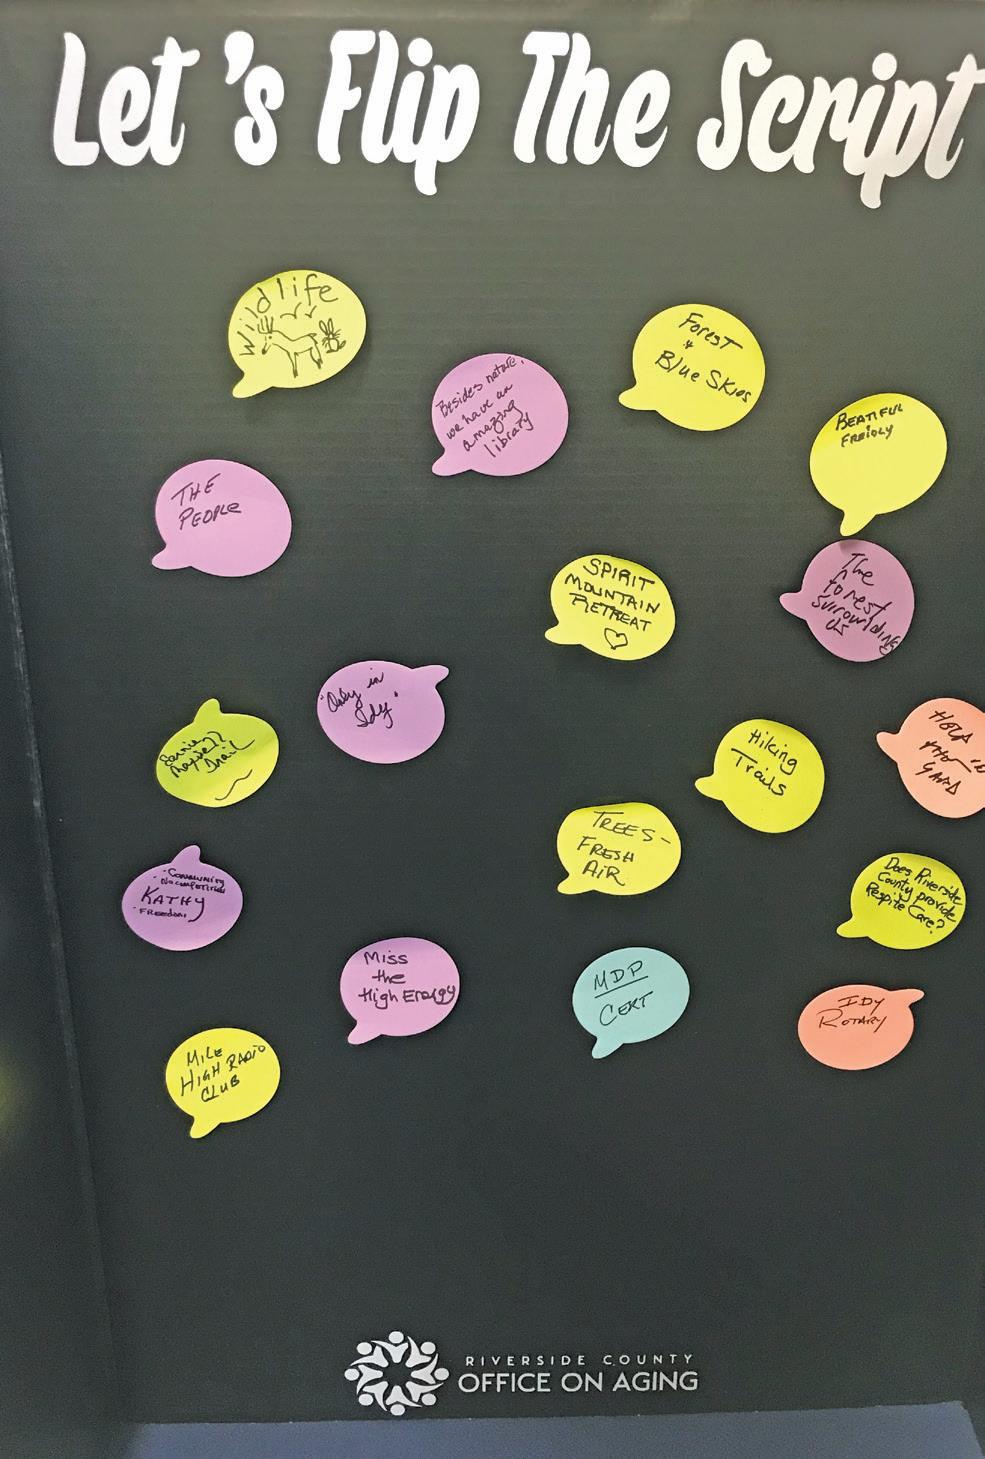 Let's Flip The Script
Wildlife
Forest
+
Blue Skies
Besides nature,
we have an
amazing
library
BEATIFUL
FREIDLY
THE
PEOPLE
The
forest
surrounding
us
SPIRIT
MOUNTAIN
RETREAT
"Only in
Idy"
Hiking
Trails
TREES -
FRESH
AIR
Does Riverside
County provide
Respite Care?
"COMMUNITY
NO COMPETITION
KATHY
"FREEDOM,
Miss
the
High Energy
MDP
CERT
IDY
ROTARY
MILE
HIGH RADIO
CLUB
RIVERSIDE COUNTY
OFFICE ON AGING